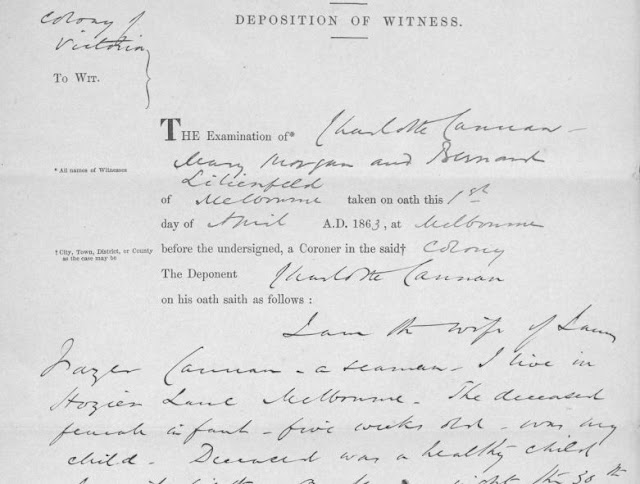 DEPOSITION OF WITNESS.
Colony of
Victoria
To Wit.
THE Examination of* Charlotte Cannan -
* All names of Witnesses
Mary Morgan and Bernard
Lilienfeld
of Melbourne taken on oath this 1st
day of April A.D. 1863, at Melbourne
† City, Town, District, or County
as the case may be
before the undersigned, a Coroner in the said† Colony
The Deponent Charlotte Cannan
on his oath saith as follows :
I am the wife of James
Frazer Cannan - a seaman - I live in
Hozier Lane Melbourne - The deceased
female infant - five weeks old - was my
child - Deceased was a healthy child
night the 30th